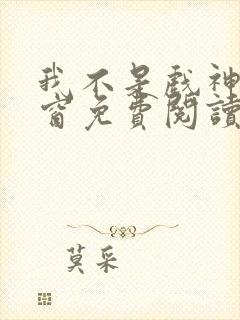 我不是戲神
窗免費閱讀
莫采